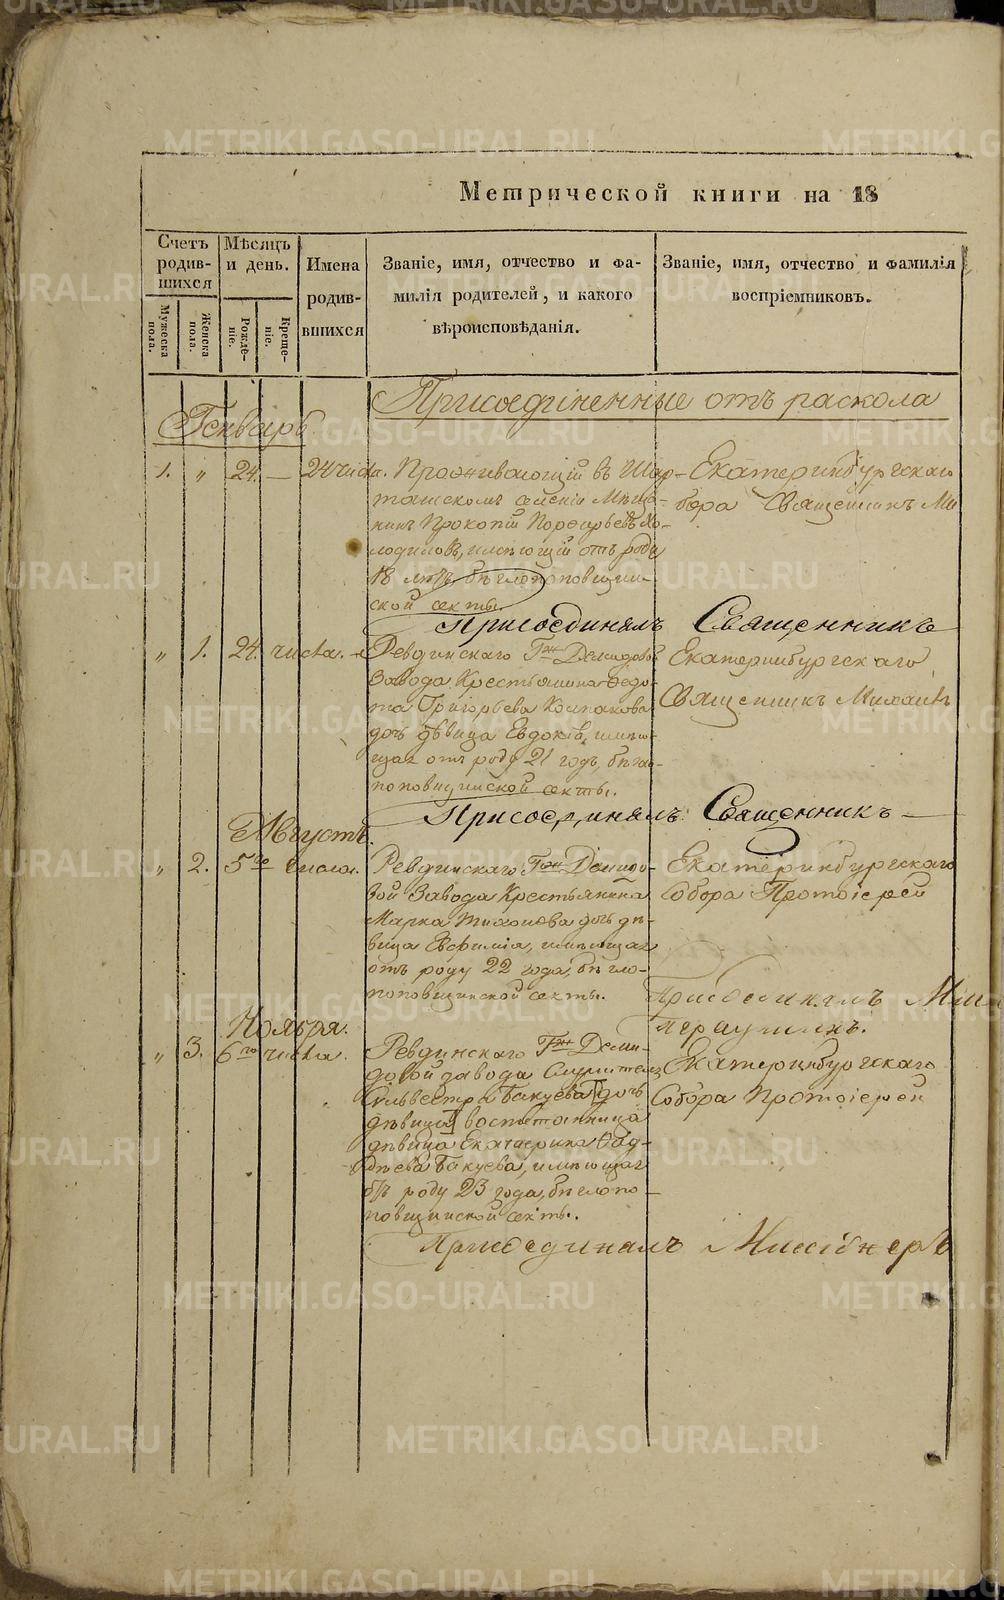 Метрической книги на 18
Счетъ родившихся
Мужеска пола.
Женска пола.
Мѣсяцъ и день.
Рождѣніе.
Крещеніе.
Имена родившихся
Званіе, имя, отчество и фа-
милія родителей, и какого
вѣроисповѣданія.
Званіе, имя, отчество и фамилія
воспріемниковъ.
Присоединенные отъ раскола
Генварь
1. " 24. — 24 числа. Проживающій въ Шар-
ташскомъ селеніи Мѣща-
нинъ Прокопій Порфирьевъ Хо-
лодиловъ, имѣющій отъ роду
18 лѣтъ, бѣглопоповщин-
ской секты.
Екатеринбургскаго
бора Священникъ Ми
Присоединялъ Священникъ
" 1. 24. числа. Ревдинскаго Гж Демидовой
Завода Крестьянина Федо-
та Григорьева Колпакова
дочь дѣвица Евдокія, имѣю-
щая отъ роду 21 годъ, бѣгло-
поповщинской секты.
Екатеринбургскаго
Священникъ Михаилъ
Присоединялъ Священникъ
Августъ.
" 2. 5го числа. Ревдинскаго Гжи Демидо-
вой Завода Крестьянина
Марка Тихонова дочь дѣ-
вица Евфимія, имѣющая
отъ роду 22 года, бѣгло-
поповщинской секты.
Екатеринбургскаго
Собора Протоіерей
Присоединялъ Мис
Ноября.
" 3. 6го числа. Ревдинскаго Гжи Деми-
довой завода Служителя
Сильвестра Бакуева дочь
дѣвица воспитанница
дѣвица Екатерина Фад-
дѣева Бакуева, имѣющая
отъ роду 23 года, бѣглопо-
повщинской секты.
Екатеринбургскаго
Собора Протоіерей
Присоединялъ Миссіонеръ
METRIKI.GASO-URAL.RU